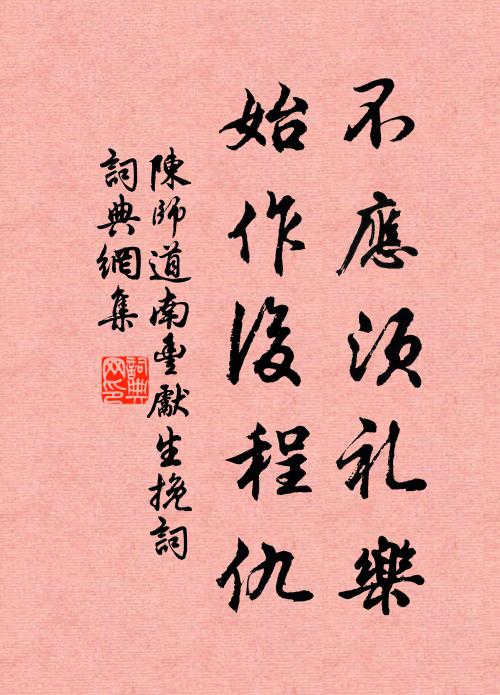 不應須礼樂
始作後程仇
陳師道南豊獻生挽詞
詞典網集
詞典网印